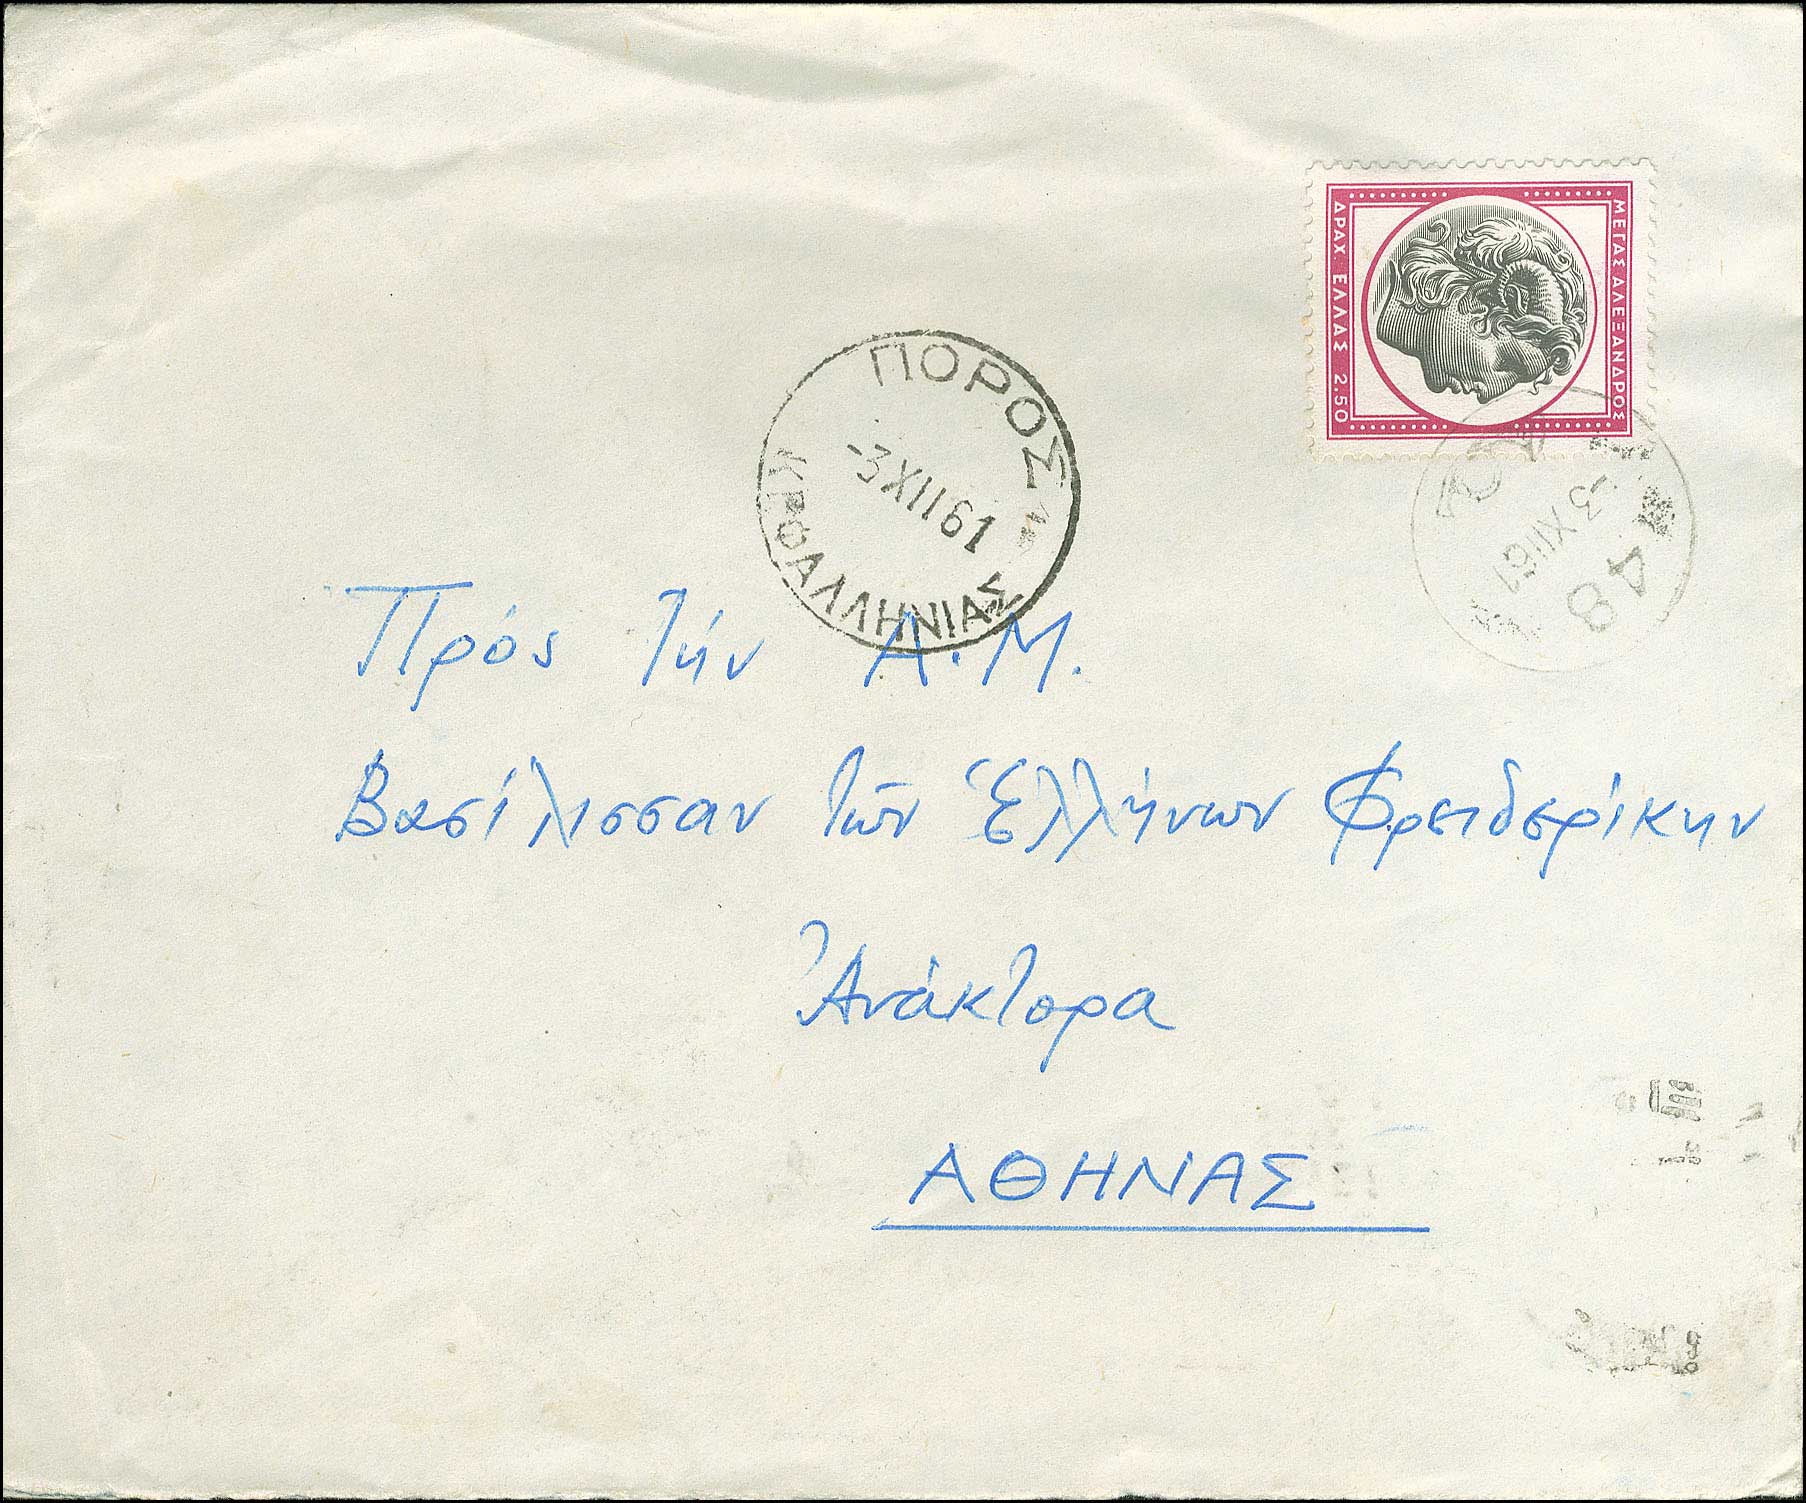 ΜΕΓΑΣ ΑΛΕΞΑΝΔΡΟΣ
ΔΡΑΧ. ΕΛΛΑΣ 2.50
ΠΟΡΟΣ
-3 XII 61
ΚΕΦΑΛΛΗΝΙΑΣ
48
3 XII 61
Πρός τήν Α.Μ.
Βασίλισσαν τῶν Ἑλλήνων Φρειδερίκην
Ἀνάκτορα
ΑΘΗΝΑΣ